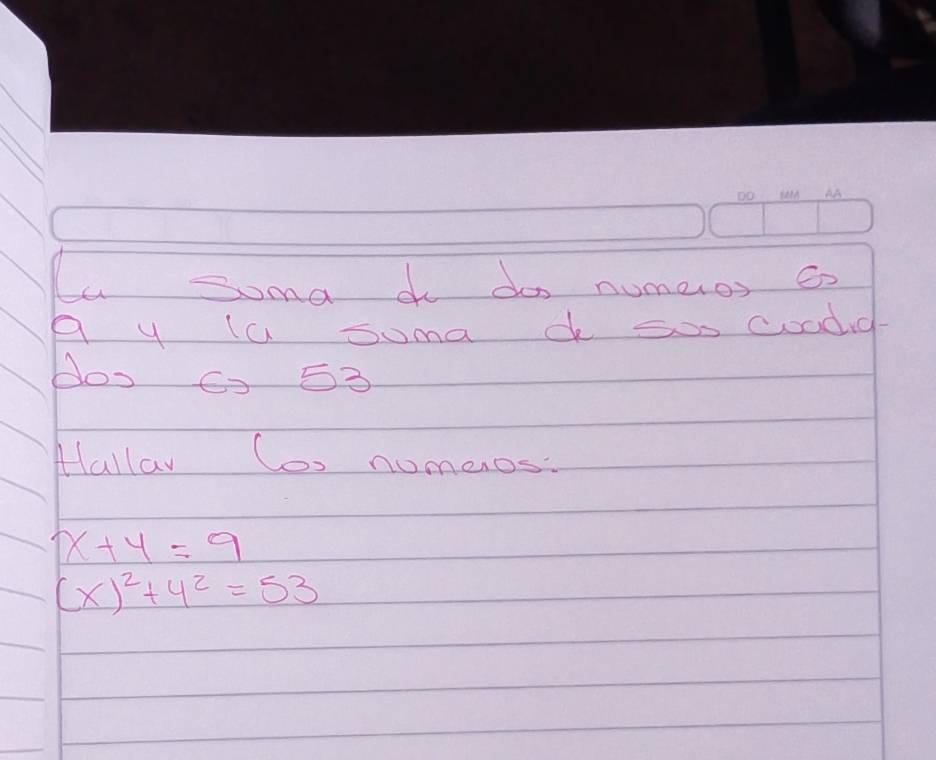 DD MM AA
La suma de dos numeros es
9 y la suma de sus cuadra-
dos es 53
Hallar los numeros:
x+y=9
(x)²+y²=53